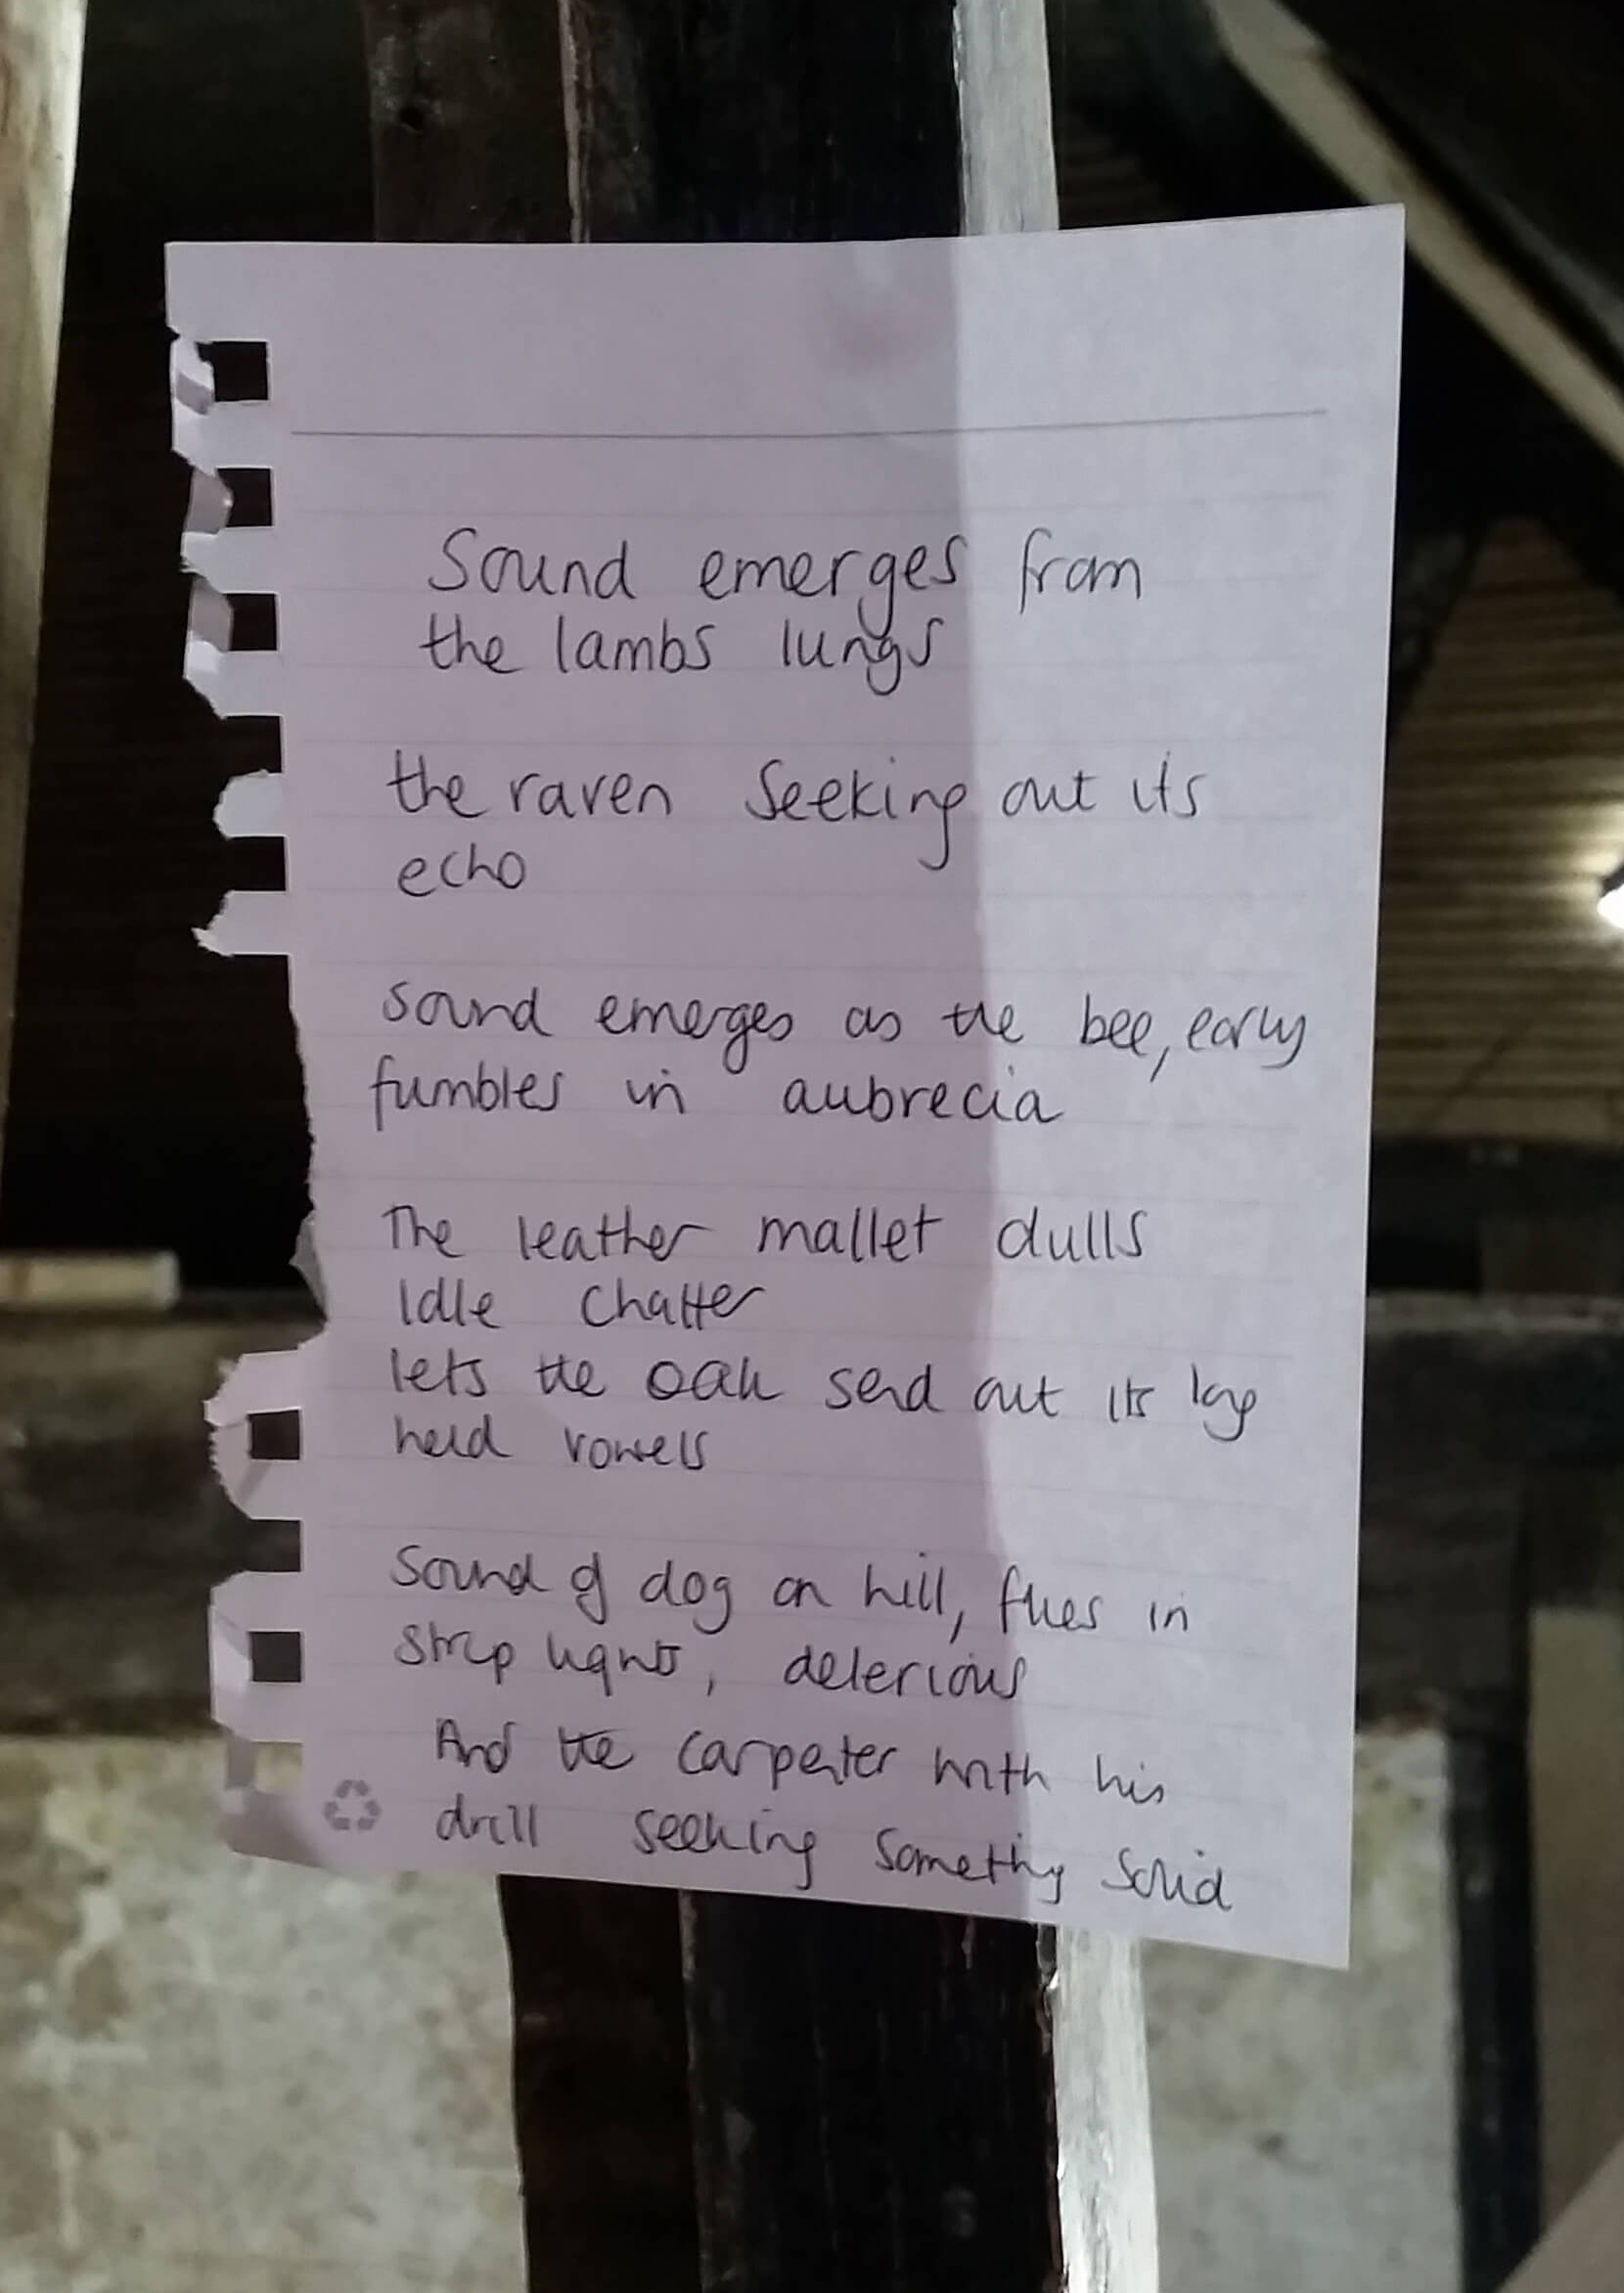 Sound emerges from
the lambs lungs
the raven seeking out its
echo
sound emerges as the bee, early
fumbles in aubrecia
The leather mallet dulls
Idle chatter
lets the oak send out its long
held vowels
Sound of dog on hill, flies in
strip lights, delerious
And the carpenter with his
drill seeking something solid